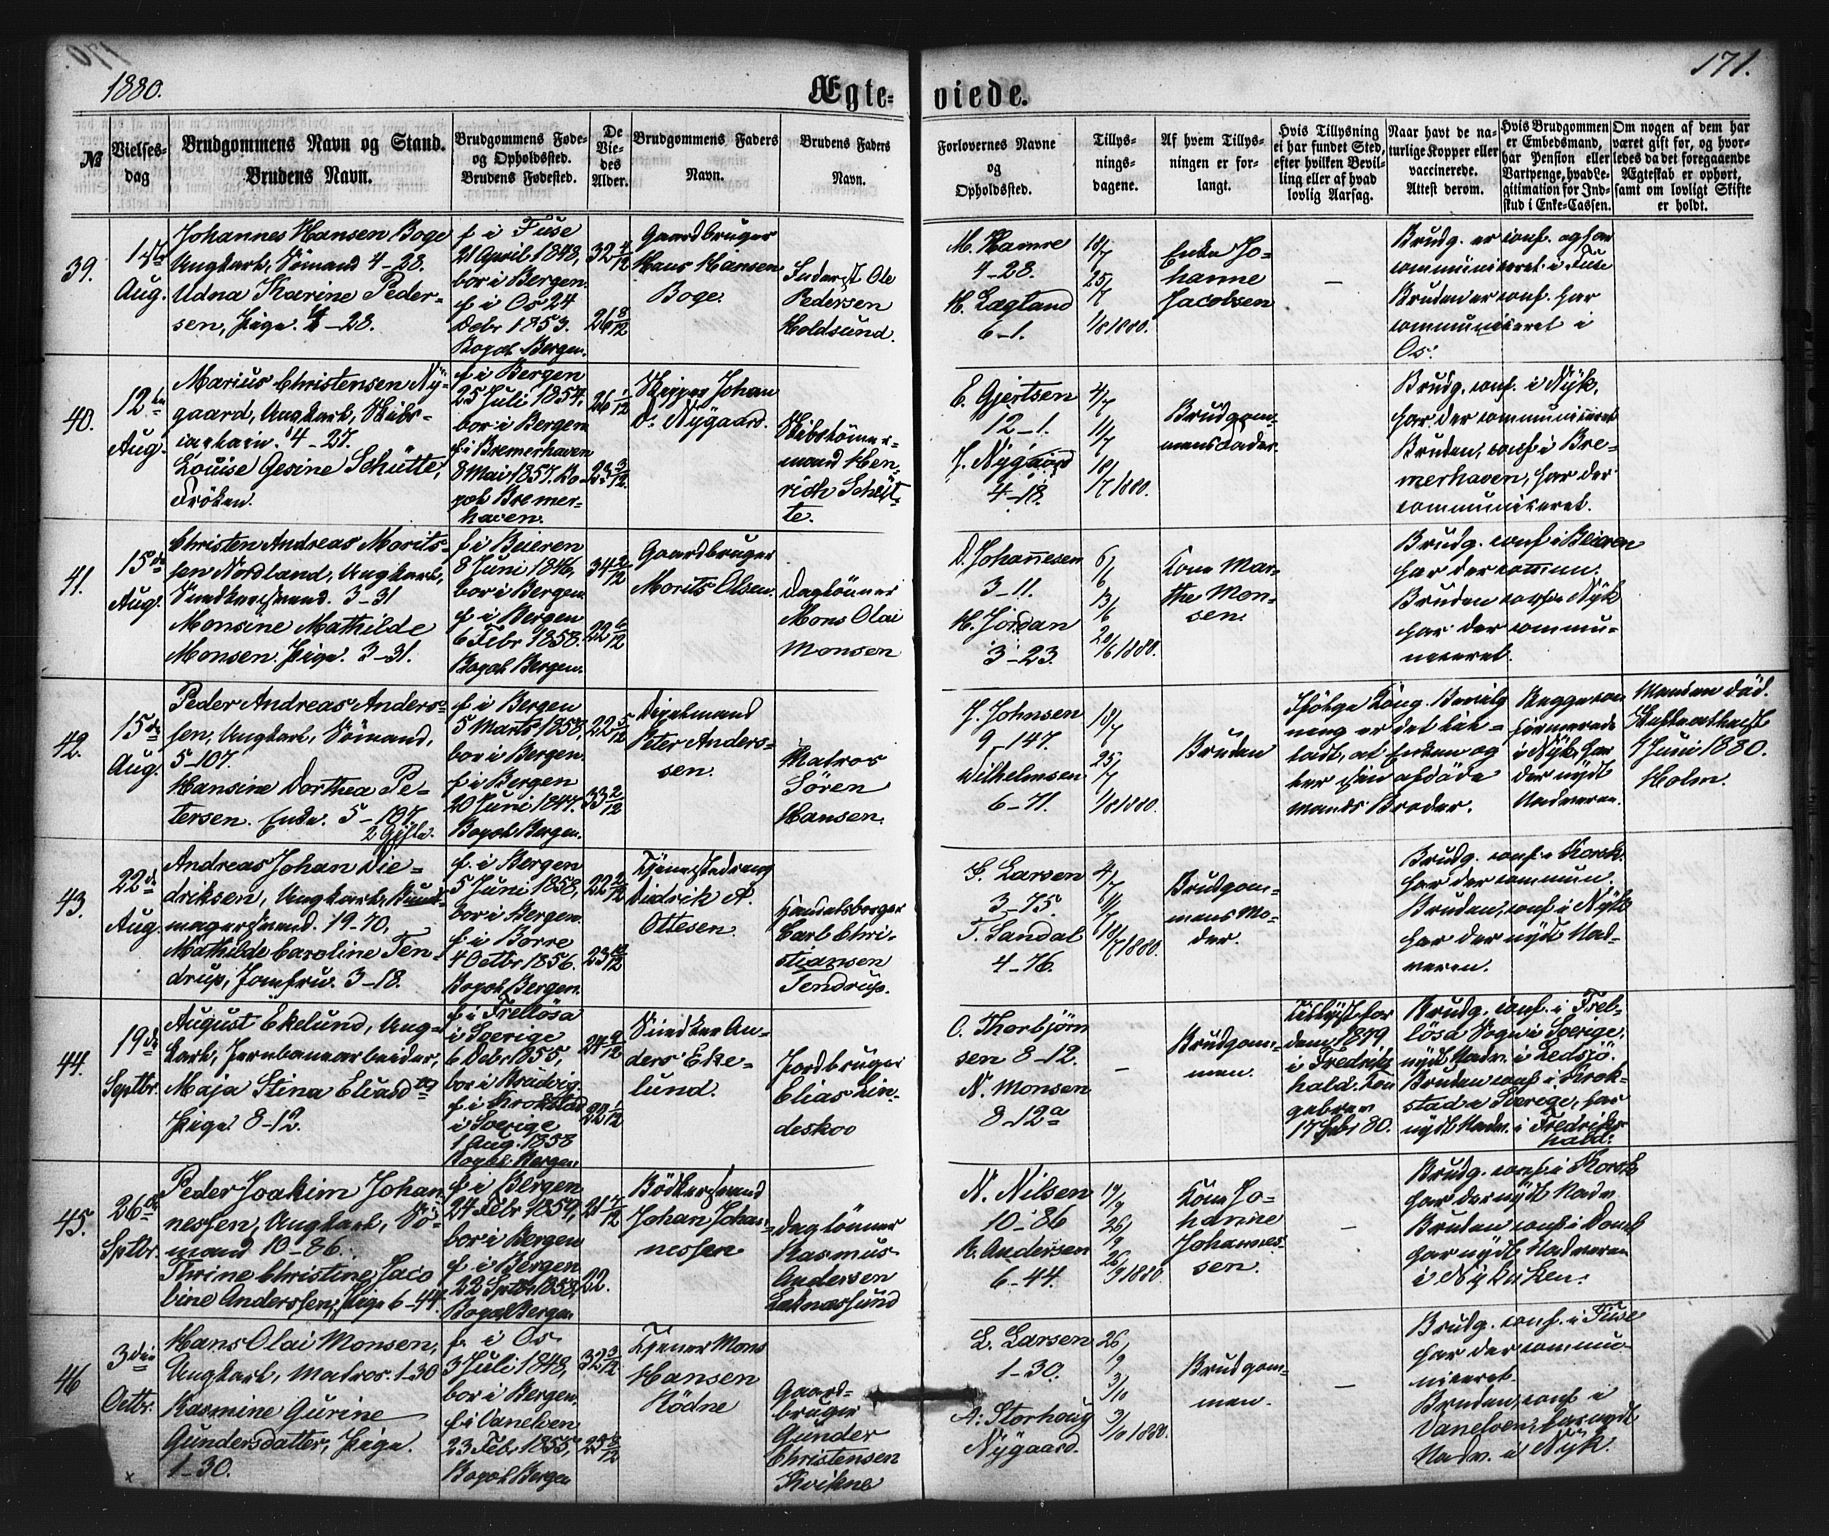 1880.
Ægte-
viede.
171.
№
Vielses-
dag
Brudgommens Navn og Stand.
Brudens Navn.
Brudgommens Føde-
og Opholdssted.
Brudens Fødested.
De
Vie-
des
Alder.
Brudgommens Faders
Navn.
Brudens Faders
Navn.
Forlovernes Navne
og
Opholdssted.
Tillys-
nings-
dagene.
Af hvem Tillys-
ningen er for-
langt.
Hvis Tillysning
ei har fundet Sted,
efter hvilken Bevil-
ling eller af hvad
lovlig Aarsag.
Naar havt de na-
turlige Kopper eller
vaccinerede.
Attest derom.
Hvis Brudgommen
er Embedsmand,
har Pension eller
Vartpenge, hvad Le-
gitimation for Ind-
skud i Enke-Cassen.
Om nogen af dem har
været gift før, og hvor-
ledes da det foregaaende
Ægteskab er ophørt,
samt om lovligt Skifte
er holdt.
39.
1ste
Aug.
Johannes Hansen Boge
Ungkarl, Sömand 4-28.
Udna Karine Peder-
sen, Pige. 4-28.
f. i Fuse
21 April 1848,
bor i Bergen.
f. i Os 24
Debr 1853.
Bopæl Bergen.
32 4/12
26 8/12
Gaardbruger
Hans Hansen
Boge.
Inderst Ole
Pedersen
Holdsund.
M. Hamre
4-28.
H. Lagland
6-1.
18/7
25/7
1/8 1880.
Enke Jo-
hanne
Jacobsen
-
Brudg. er conf. og har
communiceret i Fuse
Bruden er conf. har
communiceret i
Os.
40.
12te
Aug.
Marius Christensen Ny-
gaard, Ungkarl, Skibs-
captain. 4-27.
Louise Gesine Schütte,
Fröken.
f. i Bergen
25 Juli 1854,
bor i Bergen
f. i Bremerhaven
8 Mai 1857. Bo-
pæl Bremer-
haven.
26 1/12
23 3/12
Skipper Johan
D. Nygaard.
Skibstömmer-
mand Hen-
rich Schüt-
te.
E. Gjertsen
12-1.
J. Nygaard
4-18.
4/7
11/7
18/7 1880.
Brudgom-
mens Fader.
Brudg. conf. i Nyk.
har der communiceret
Bruden, conf. i Bre-
merhaven, har der
communiceret.
41.
15de
Aug.
Christen Andreas Morits-
sen Nordland, Ungkarl,
Snedkersvend. 3-31
Monsine Mathilde
Monsen. Pige. 3-31.
f. i Beieren
8 Juni 1846,
bor i Bergen
f. i Bergen
6 Febr 1858.
Bopæl Bergen.
34 2/12
22 6/12
Gaardbruger
Morits Olsen.
Daglönner
Mons Olai
Monsen
D. Johannesen
3-11.
H. Jordan
3-23.
6/6
13/6
20/6 1880.
Kone Mar-
the Mon-
sen.
Brudg. conf. i Beieren
har der commun.
Bruden conf. i Nyk
har der commu-
niceret.
42.
15de
Aug.
Peder Andreas Anders-
sen, Ungkarl, Sömand,
5-107.
Hansine Dorthea Pe-
tersen. Enke. 5-107.
2 Gifte.
f. i Bergen
5 Marts 1858,
bor i Bergen.
f. i Bergen
20 Juni 1847.
Bopæl Bergen.
22 5/12
33 2/12
Peter Anders-
sen.
Matros
Sören
Hansen.
J. Johnsen
9-147.
Wilhelmsen
6-71.
18/7
25/7
1/8 1880.
Bruden
Ifölge Kong. Bevilg
ning er det til-
ladt, at Enken eg
ter sin afdöde
Mands Broder.
Begge con
firmerede
i Nyk, har
der nydt
Nadveren.
Manden död.
7 Juni 1880.
Holm.
43.
22de
Aug.
Andreas Johan Die-
driksen, Ungkarl, Bundt-
magersvend. 19-70,
Mathilde Caroline Ten-
drup, Jomfru. 3-18.
f. i Bergen
5 Juni 1858,
bor i Bergen.
f. i Borre
4 Octbr 1856.
Bopæl Bergen.
22 2/12
23 10/12
Tjenestedreng
Didrik A.
Ottesen.
Handelsborger
Carl Chri-
stiansen
Tendrup.
S. Larsen
3-75.
T. Sandal
4-76.
4/7
11/7
18/7 1880.
Brudgom-
mens Mo-
der.
Brudg. conf. i Korsk
har der commun.
Bruden, conf. i Nyk
har der nydt Nad-
veren.
44.
19de
Septbr.
August Ekelund, Ung-
karl, Jernbanearbeider,
Maja Stina Eliasd
Pige 8-12.
f. i Frellösa
i Sverige
6 Debr 1855,
bor i
f. i Krokstad
i Sverige
1 Aug. 1858
Bopæl Bergen
24 9/12
22 1/12
Snedker An-
ders Eke-
lund.
Jordbruger
Elias Lin-
deskov
O. Thorbjörn
sen 8-12.
N. Monsen
8-12a
-
Brudgom-
men.
Tillyst for
dem 1879
i Fredriks
hald.
17 Febr 80.
Brudg. conf. i Frel-
lösa Sogn i Sverige,
nydt Nadv. i Ledsjö.
Bruden conf. i Krok-
stad i Sverige, har
nydt Nadv. i Fredriks
hald.
45.
26de
Sptbr.
Peder Joakim Johan-
nessen, Ungkarl, Sö-
mand 10-86.
Thrine Christine Jaco
bine Anderssen, Pige 6-44.
f. i Bergen
24 Febr 1859,
bor i Bergen
f. i Bergen
22 Sptbr 1858,
Bopæl Bergen
21 7/12
22.
Bödkersvend
Johan Johan-
nessen
Daglönner
Rasmus
Andersen
Laknessund
N. Nilsen
10-86
R. Andersen
6-44.
19/9
26/9
26/9 1880
Kone Jo-
hanne
Johannes-
sen.
-
Brudg. conf. i Korsk
har der nydt Nadv.
Bruden conf. i Domk
har nydt Nadveren
i Nykirken.
46
3die
Octbr.
Hans Olai Monsen,
Ungkarl, Matros. 1-30
Rasmine Gurine
Gundersdatter, Pige.
1-30.
f. i Os
3 Juli 1848,
bor i Bergen.
f. i Vanelven
23 Feb. 1855,
Bopæl Bergen
32 3/12
25 8/12
Tjener Mons
Hansen
Rödne
Gaard-
bruger
Gunder
Christensen
Kvikne
L. Larsen
1-30.
A. Storhoug
Nygaard.
26/9
3/10
3/10 1880.
Brudgom-
men.
-
Brudg. conf. i Fuse
har der commu-
niceret.
Bruden, conf. i
Vanelven, har nydt
Nadv. i Nyk.
x